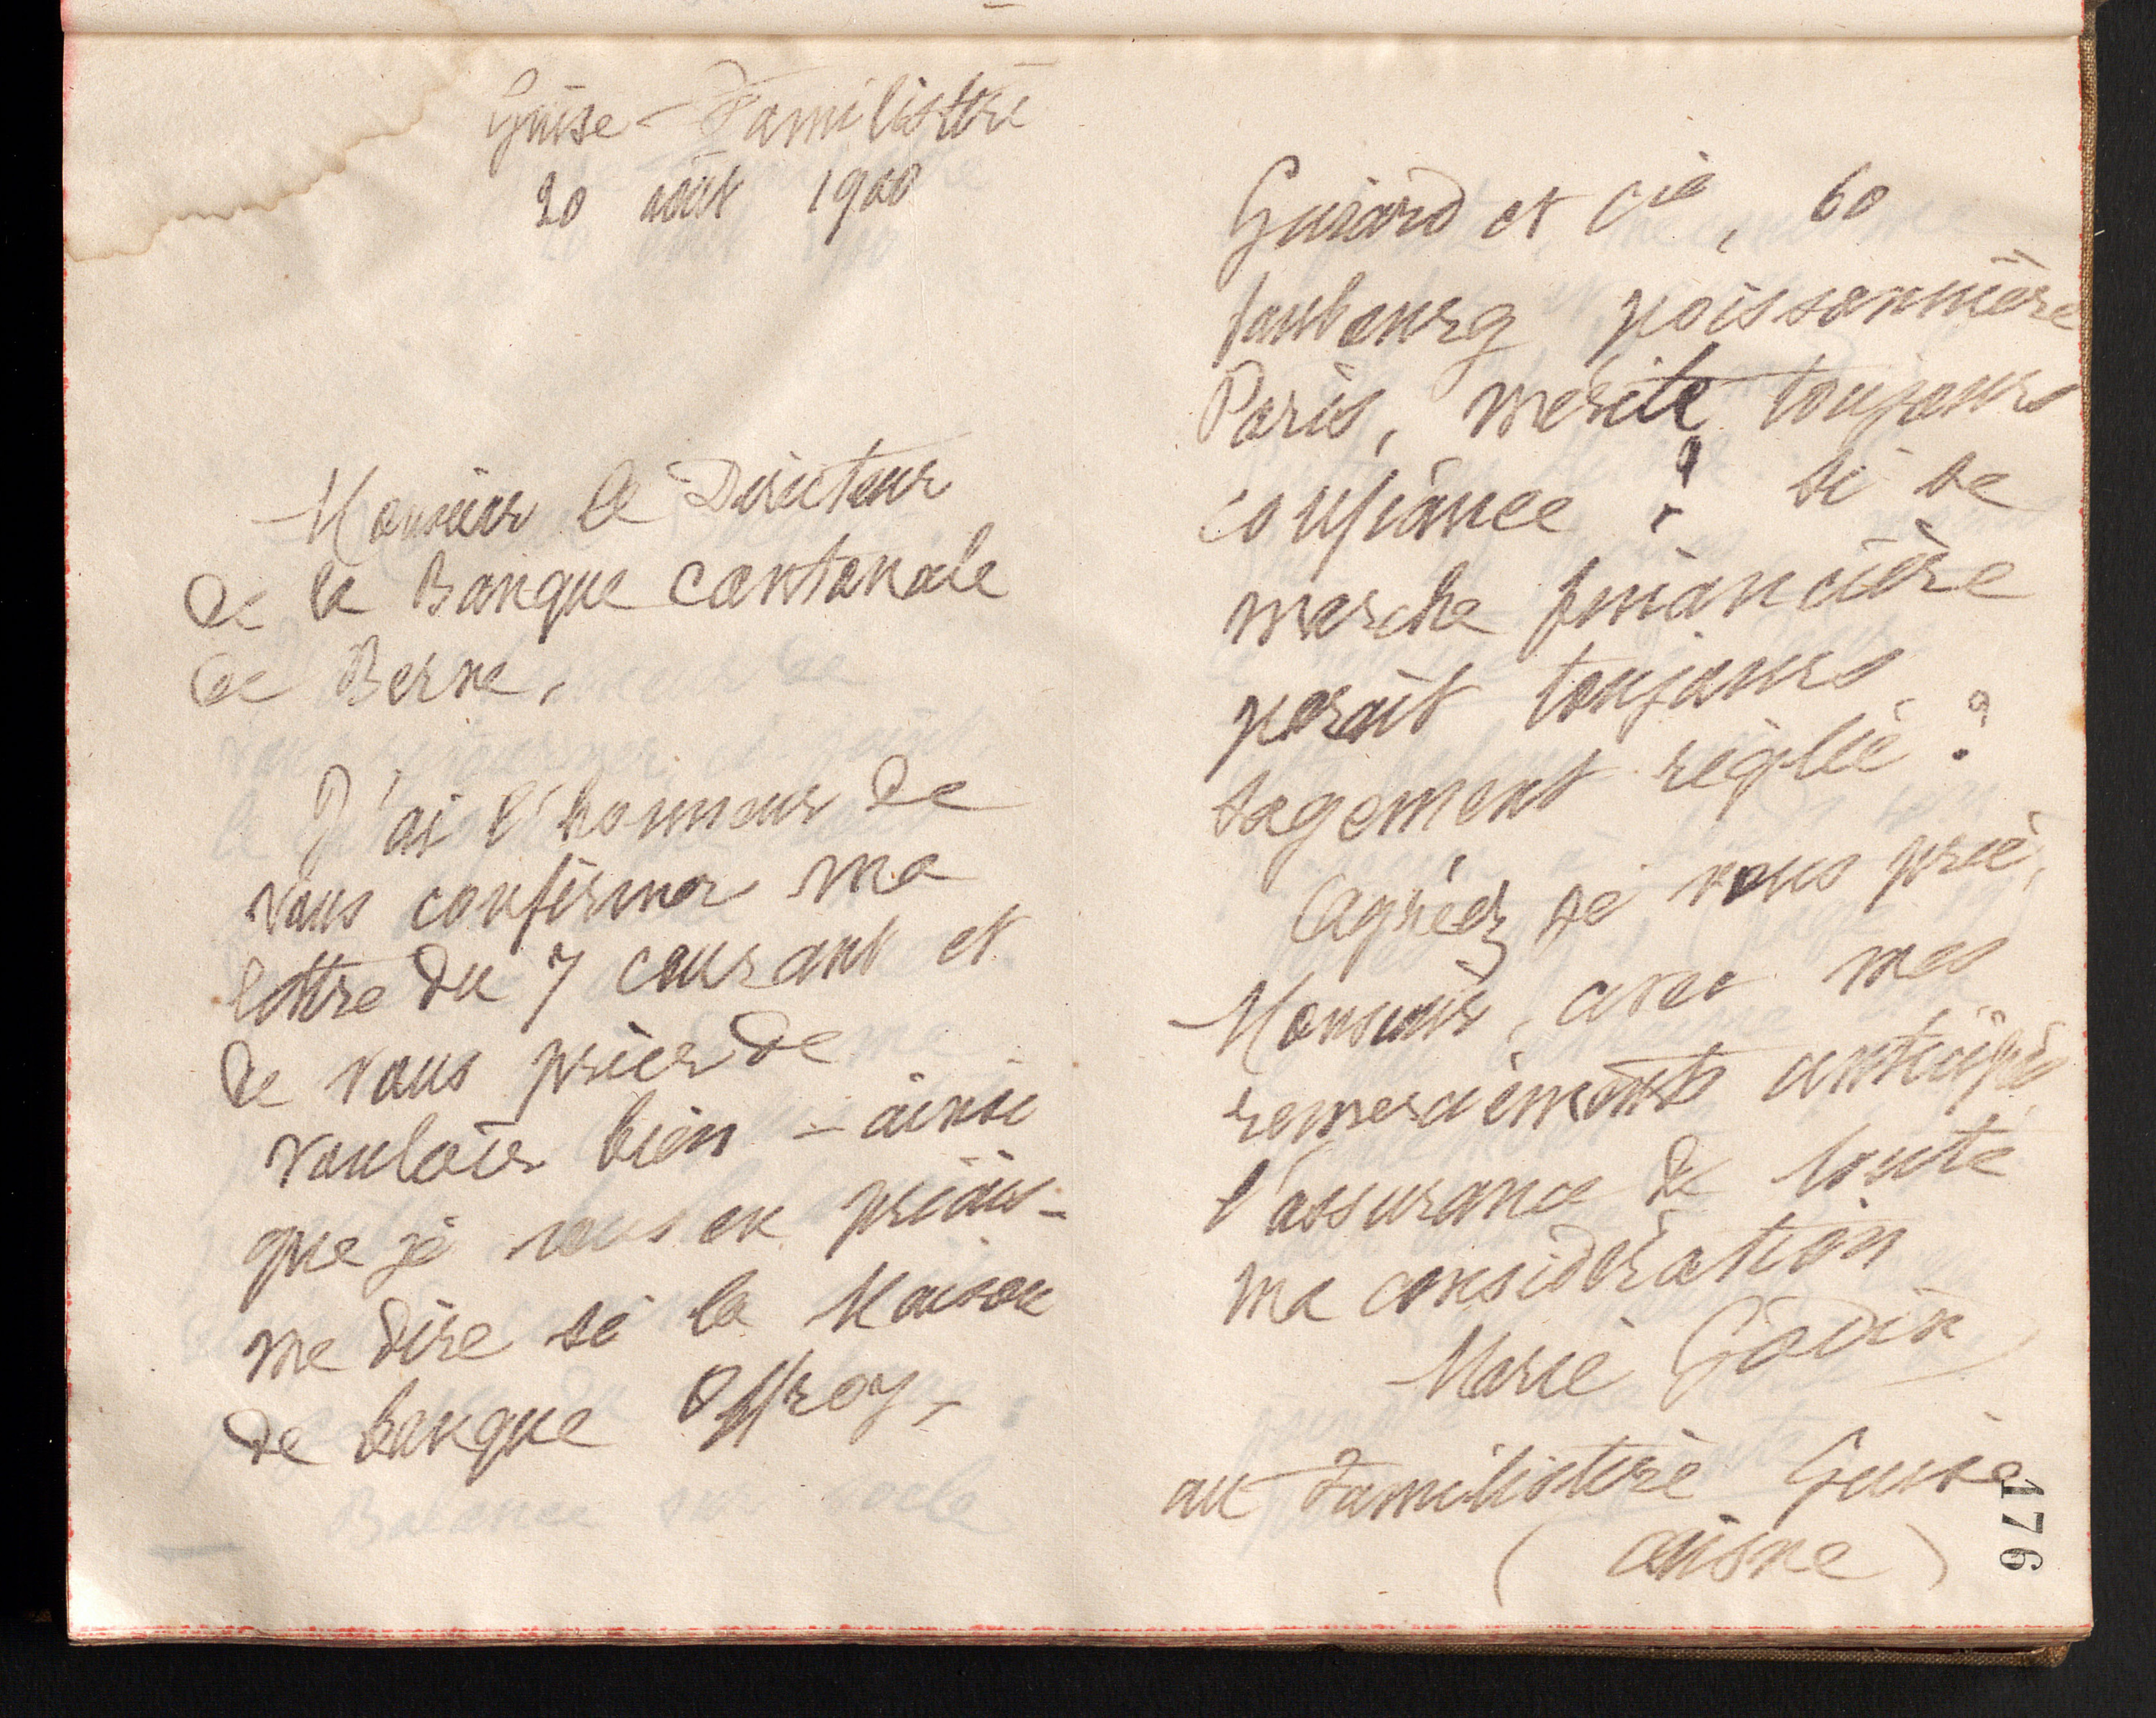 Guise-Familistère
20 août 1900
Monsieur le Directeur
de la Banque cantonale
de Berne,
J'ai l'honneur de
vous confirmer ma
lettre du 7 courant et
de vous prier de
vouloir bien - ainsi
que je vous en priais -
me dire si la Maison
de banque Offroy,
Guiard et Cie, 60
faubourg poissonnière
Paris, mérite toujours
confiance ? si sa
marche financière
paraît toujours
sagement réglée ?
Agréez je vous prie,
Monsieur, avec mes
remerciements anticipés
l'assurance de toute
ma considération
Marie Godin
au Familistère Guise
(Aisne)
176